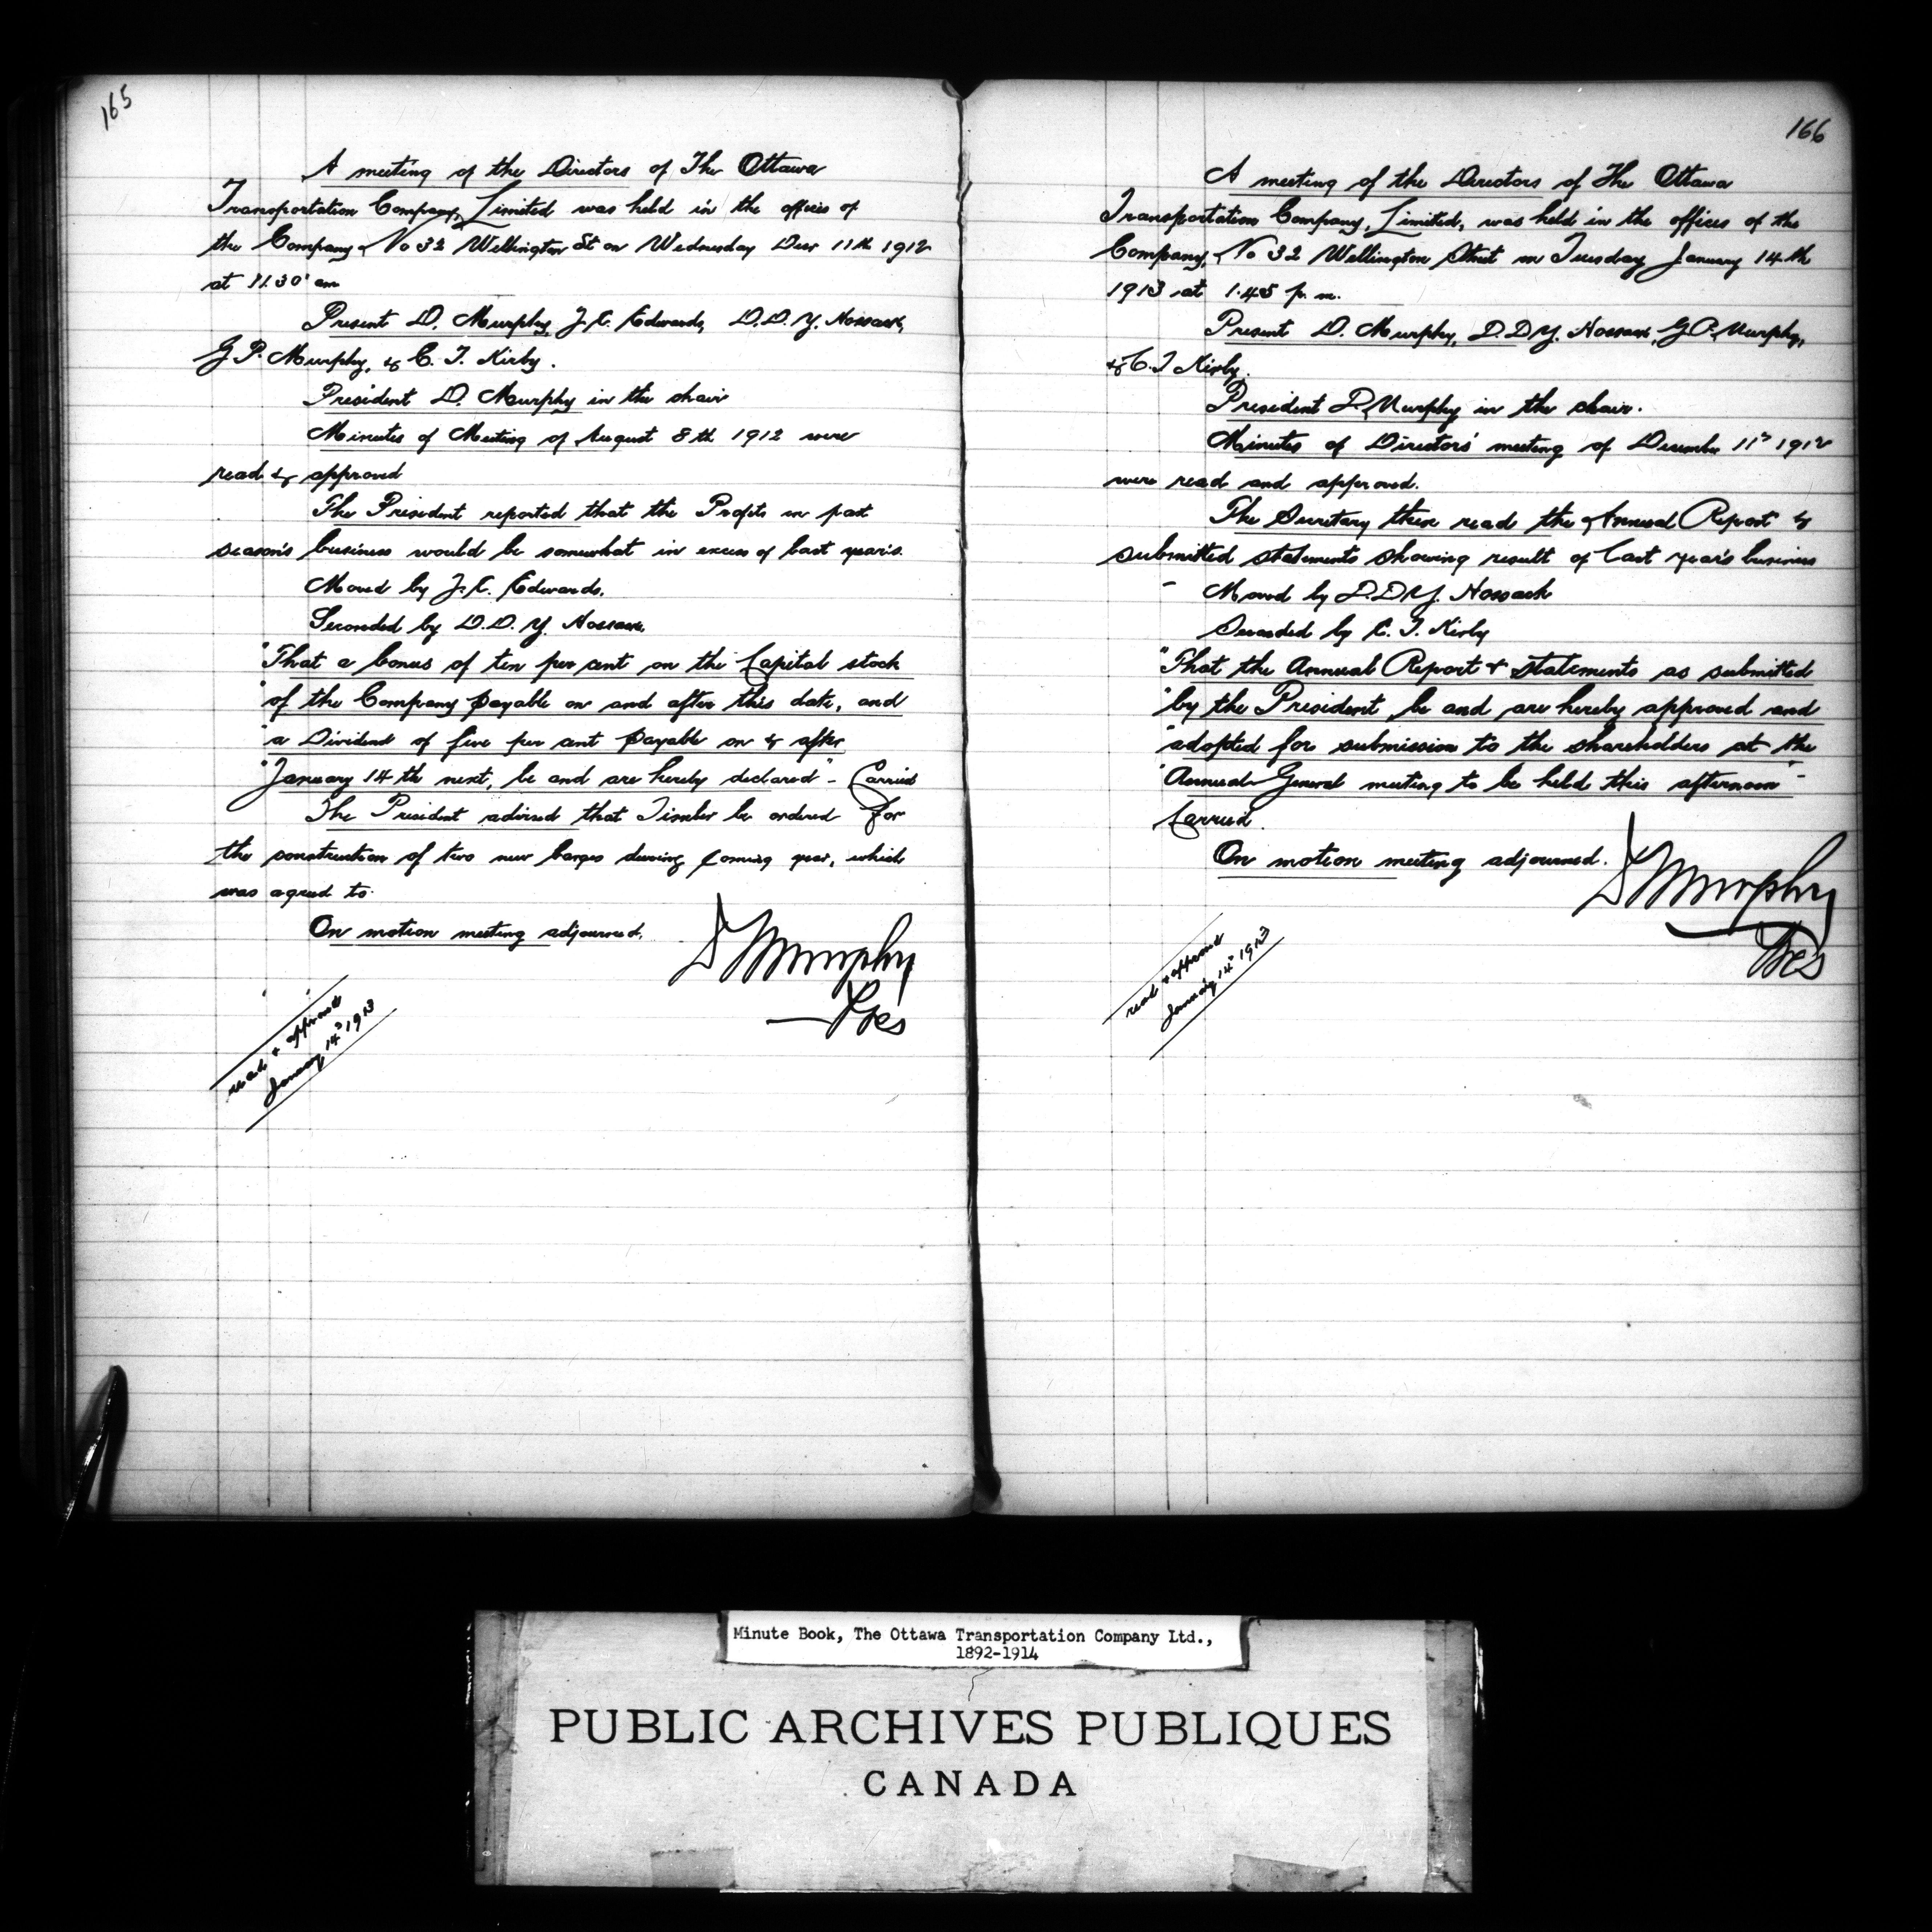 165
A meeting of the Directors of The Ottawa
Transportation Company, Limited was held in the offices of
the Company, No 32 Wellington St on Wednesday Decr 11th 1912
at 11.30 am
Present D. Murphy, J. C. Edwards, D.D. Y. Hossack,
G P. Murphy, & C. T. Kirby.
President D. Murphy in the chair
Minutes of Meeting of August 8th 1912 were
read & approved
The President reported that the Profits on past
season's business would be somewhat in excess of last year's.
Moved by J. C. Edwards.
Seconded by D.D. Y. Hossack
"That a bonus of ten per cent on the Capital stock
"of the Company payable on and after this date, and
"a Dividend of five per cent payable on & after
"January 14th next, be and are hereby declared" - Carried
The President advised that Timber be ordered for
the construction of two new barges during coming year, which
was agreed to.
On motion meeting adjourned.
D Murphy
Pres
read & approved
January 14" 1913
166
A meeting of the Directors of The Ottawa
Transportation Company, Limited, was held in the offices of the
Company, No 32 Wellington Street on Tuesday January 14th
1913 at 1.45 p.m.
Present D. Murphy, D.D Y. Hossack, G.P. Murphy,
& C. T Kirby.
President D. Murphy in the chair.
Minutes of Directors' meeting of December 11" 1912
were read and approved.
The Secretary then read the Annual Report &
submitted statements showing result of last year's business
- Moved by D.D Y. Hossack
Seconded by C. T. Kirby
"That the Annual Report & statements as submitted
"by the President be and are hereby approved and
"adopted for submission to the shareholders at the
"Annual General meeting to be held this afternoon" -
Carried.
On motion meeting adjourned.
D Murphy
Pres
read & approved
January 14" 1913
Minute Book, The Ottawa Transportation Company Ltd.,
1892-1914
PUBLIC ARCHIVES PUBLIQUES
CANADA